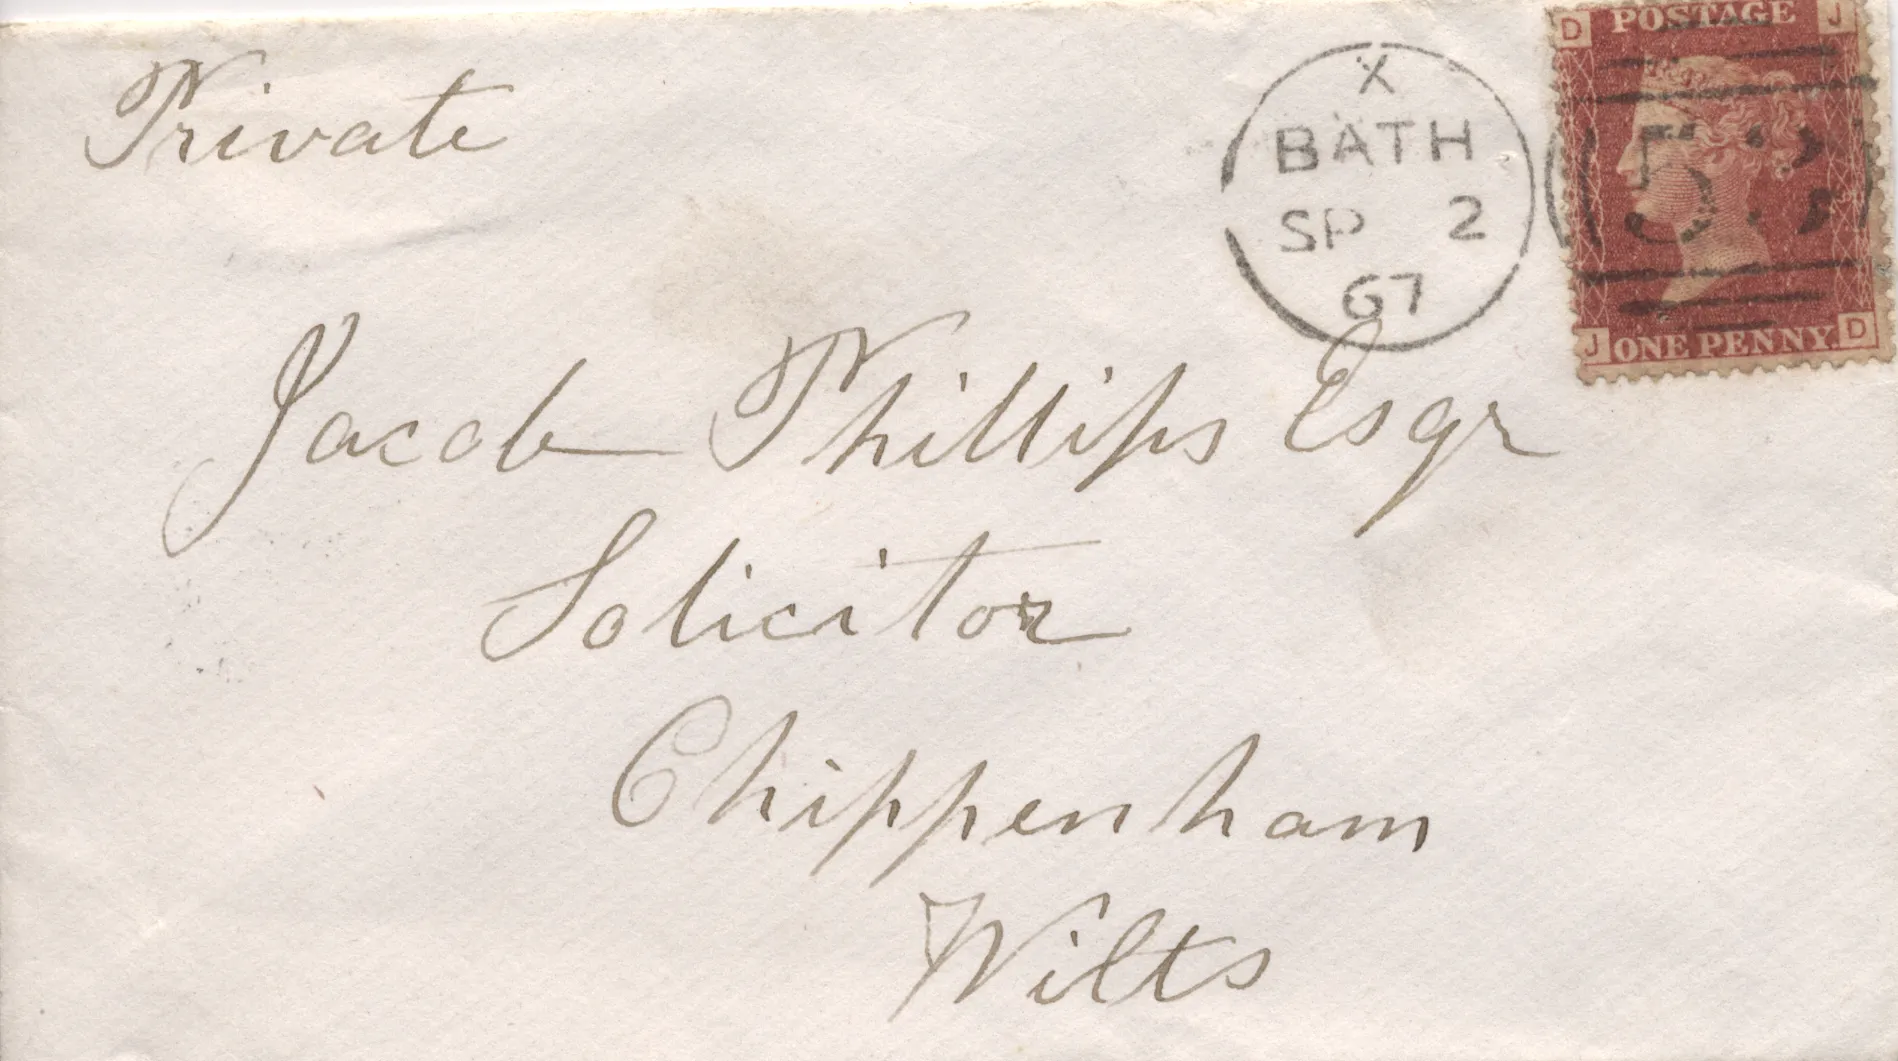 Private
X
BATH
SP 2
67
D POSTAGE J
53
J ONE PENNY. D
Jacob Phillips Esqr
Solicitor
Chippenham
Wilts